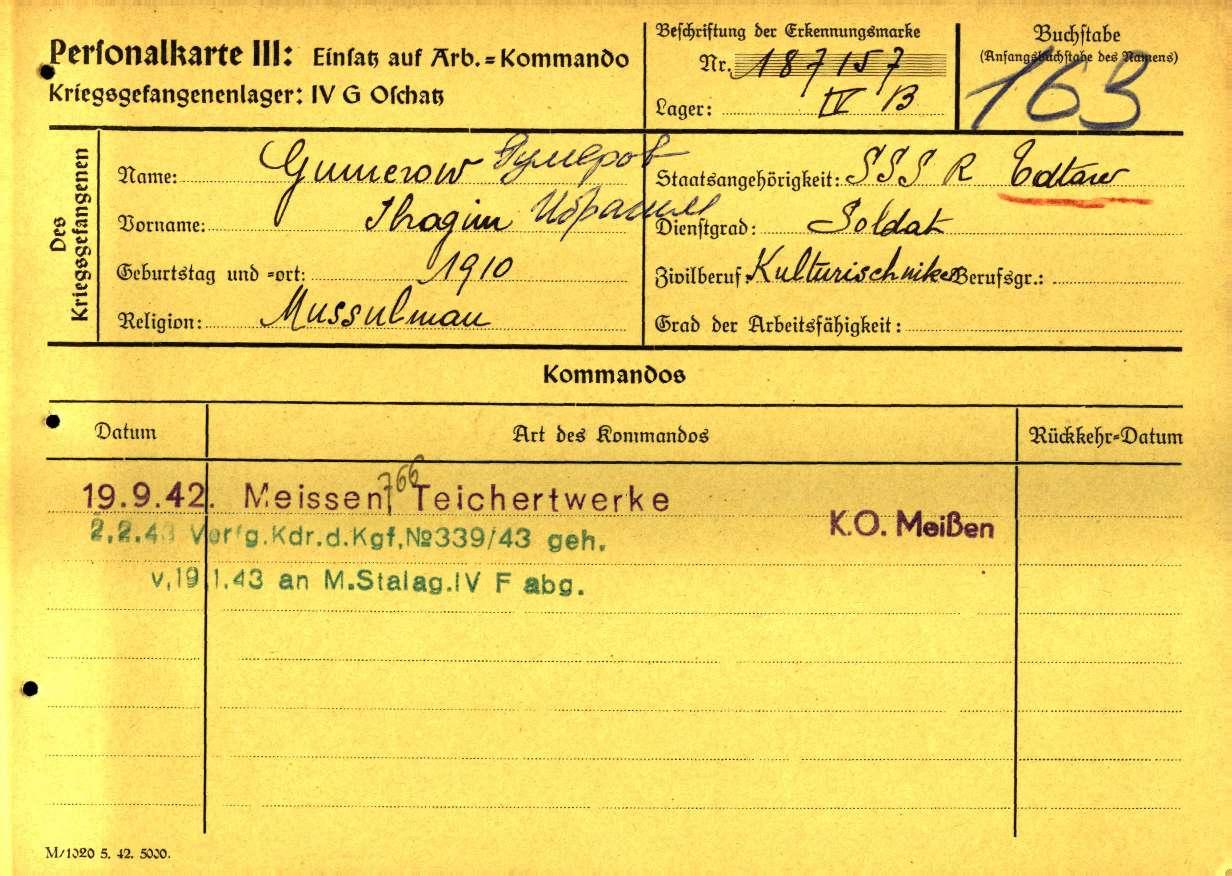 Personalkarte III: Einsatz auf Arb.=Kommando
Kriegsgefangenenlager: IV G Oschatz
Beschriftung der Erkennungsmarke
Nr. 187157
Lager: IV B
Buchstabe
(Anfangsbuchstabe des Namens)
163
Des Kriegsgefangenen
Name: Gumerow Гумеров
Vorname: Ibragim Ибрагим
Geburtstag und =ort: 1910
Religion: Mussulman
Staatsangehörigkeit: SSSR
Dienstgrad: Soldat
Zivilberuf: Berufsgr.:
Grad der Arbeitsfähigkeit:
Kommandos
Datum Art des Kommandos Rückkehr=Datum
19.9.42. Meissen, 766 Teichertwerke
K.O. Meißen
2.2.43 Verfg.Kdr.d.Kgf,№339/43 geh.
v,19.1.43 an M.Stalag.IV F abg.
M/1020 5. 42. 5000.